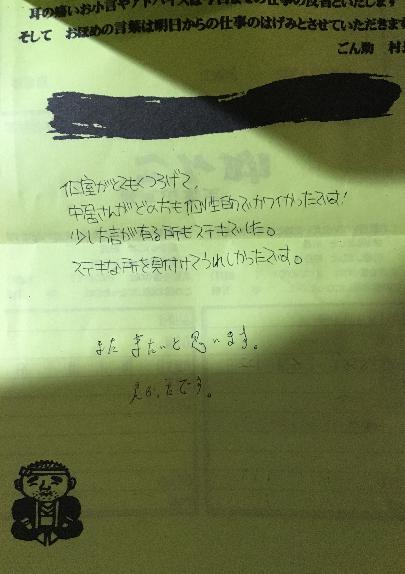 耳の痛いお小言やアドバイスは今日までの仕事の反省といたします
そして　おほめの言葉は明日からの仕事のはげみとさせていただきます
ごん助　村
個室がとてもくつろげて、
中居さんがどの方も個性的でカワイかったです!
少し方言が有る所もステキでした。
ステキな所を見付けてうれしかったです。
また 来たいと思います。
です。